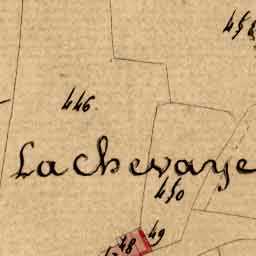 446.
La Chevaye
450
49
48